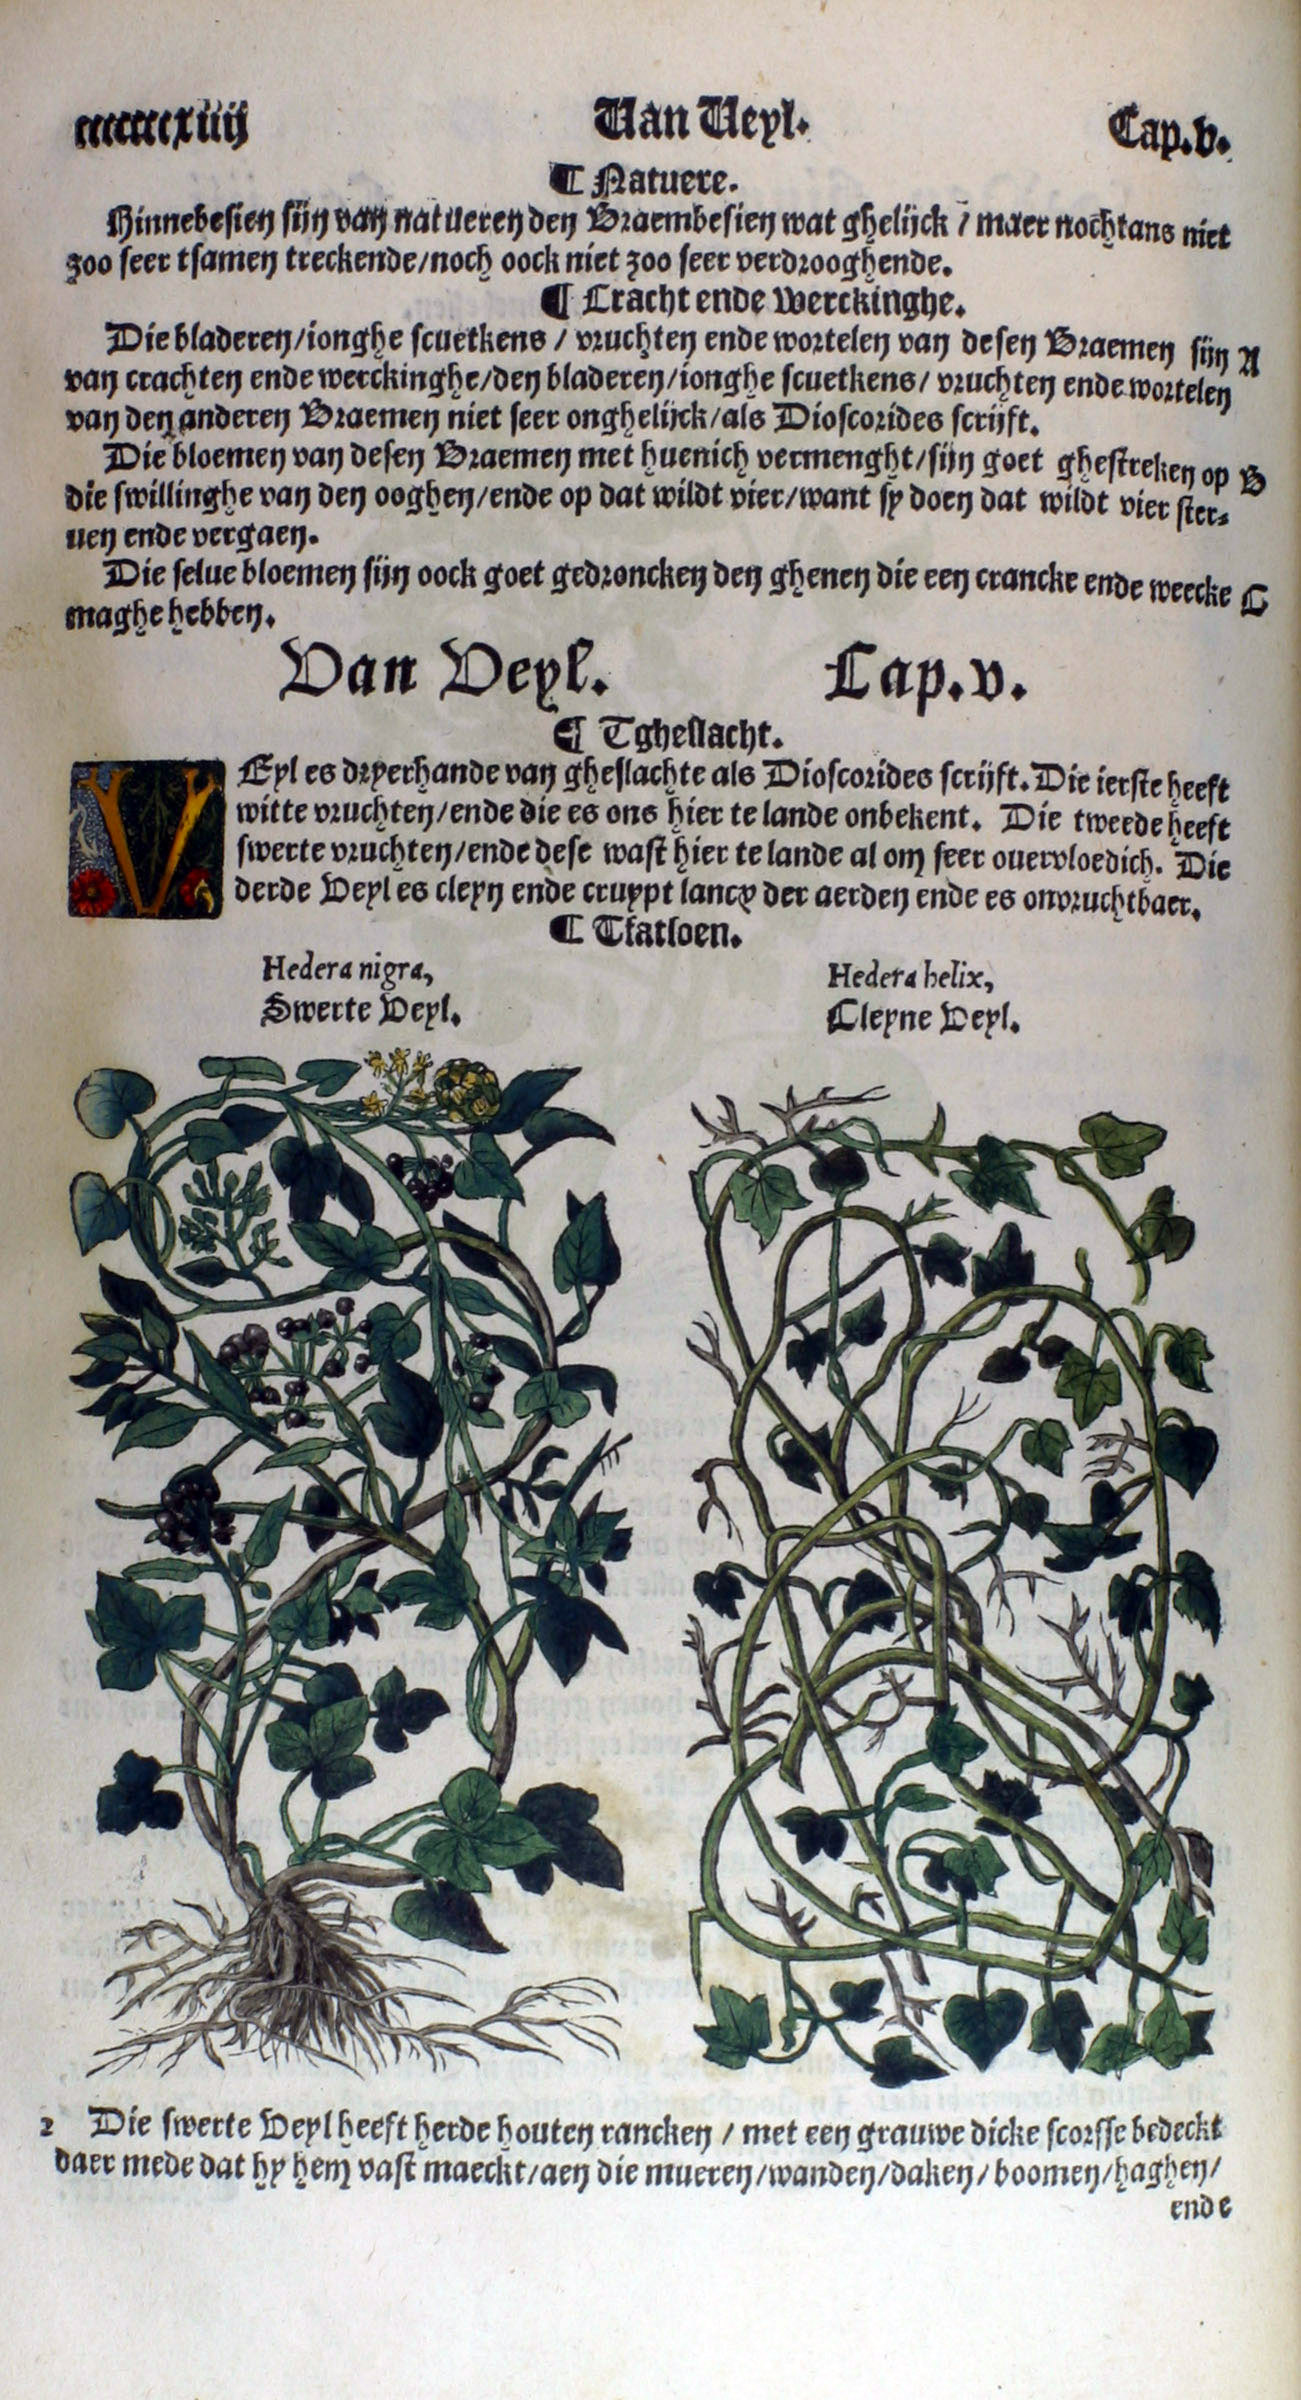 ccccccxiiij Van Veyl. Cap.v.
¶ Natuere.
Hinnebesien sijn van natueren den Braembesien wat ghelijck / maer nochtans niet
zoo seer tsamen treckende/noch oock niet zoo seer verdrooghende.
¶ Cracht ende Werckinghe.
Die bladeren/ionghe scuetkens / vruchten ende wortelen van desen Braemen sijn A
van crachten ende werckinghe/den bladeren/ionghe scuetkens/ vruchten ende wortelen
van den anderen Braemen niet seer onghelijck/als Dioscorides scrijft.
Die bloemen van desen Braemen met huenich vermenght/sijn goet ghestreken op B
die swillinghe van den ooghen/ende op dat wildt vier/want sy doen dat wildt vier ster-
uen ende vergaen.
Die selue bloemen sijn oock goet gedroncken den ghenen die een crancke ende weecke C
maghe hebben.
Van Veyl. Cap.v.
¶ Tgheslacht.
VEyl es dryerhande van gheslachte als Dioscorides scrijft. Die ierste heeft
witte vruchten/ende die es ons hier te lande onbekent. Die tweede heeft
swerte vruchten/ende dese wast hier te lande al om seer ouervloedich. Die
derde Veyl es cleyn ende cruypt lancx der aerden ende es onvruchtbaer.
¶ Tfatsoen.
Hedera nigra,
Swerte Veyl.
Hedera helix,
Cleyne Veyl.
2 Die swerte Veyl heeft herde houten rancken / met een grauwe dicke scorsse bedeckt
daer mede dat hy hem vast maeckt/aen die mueren/wanden/daken/boomen/haghen/
ende